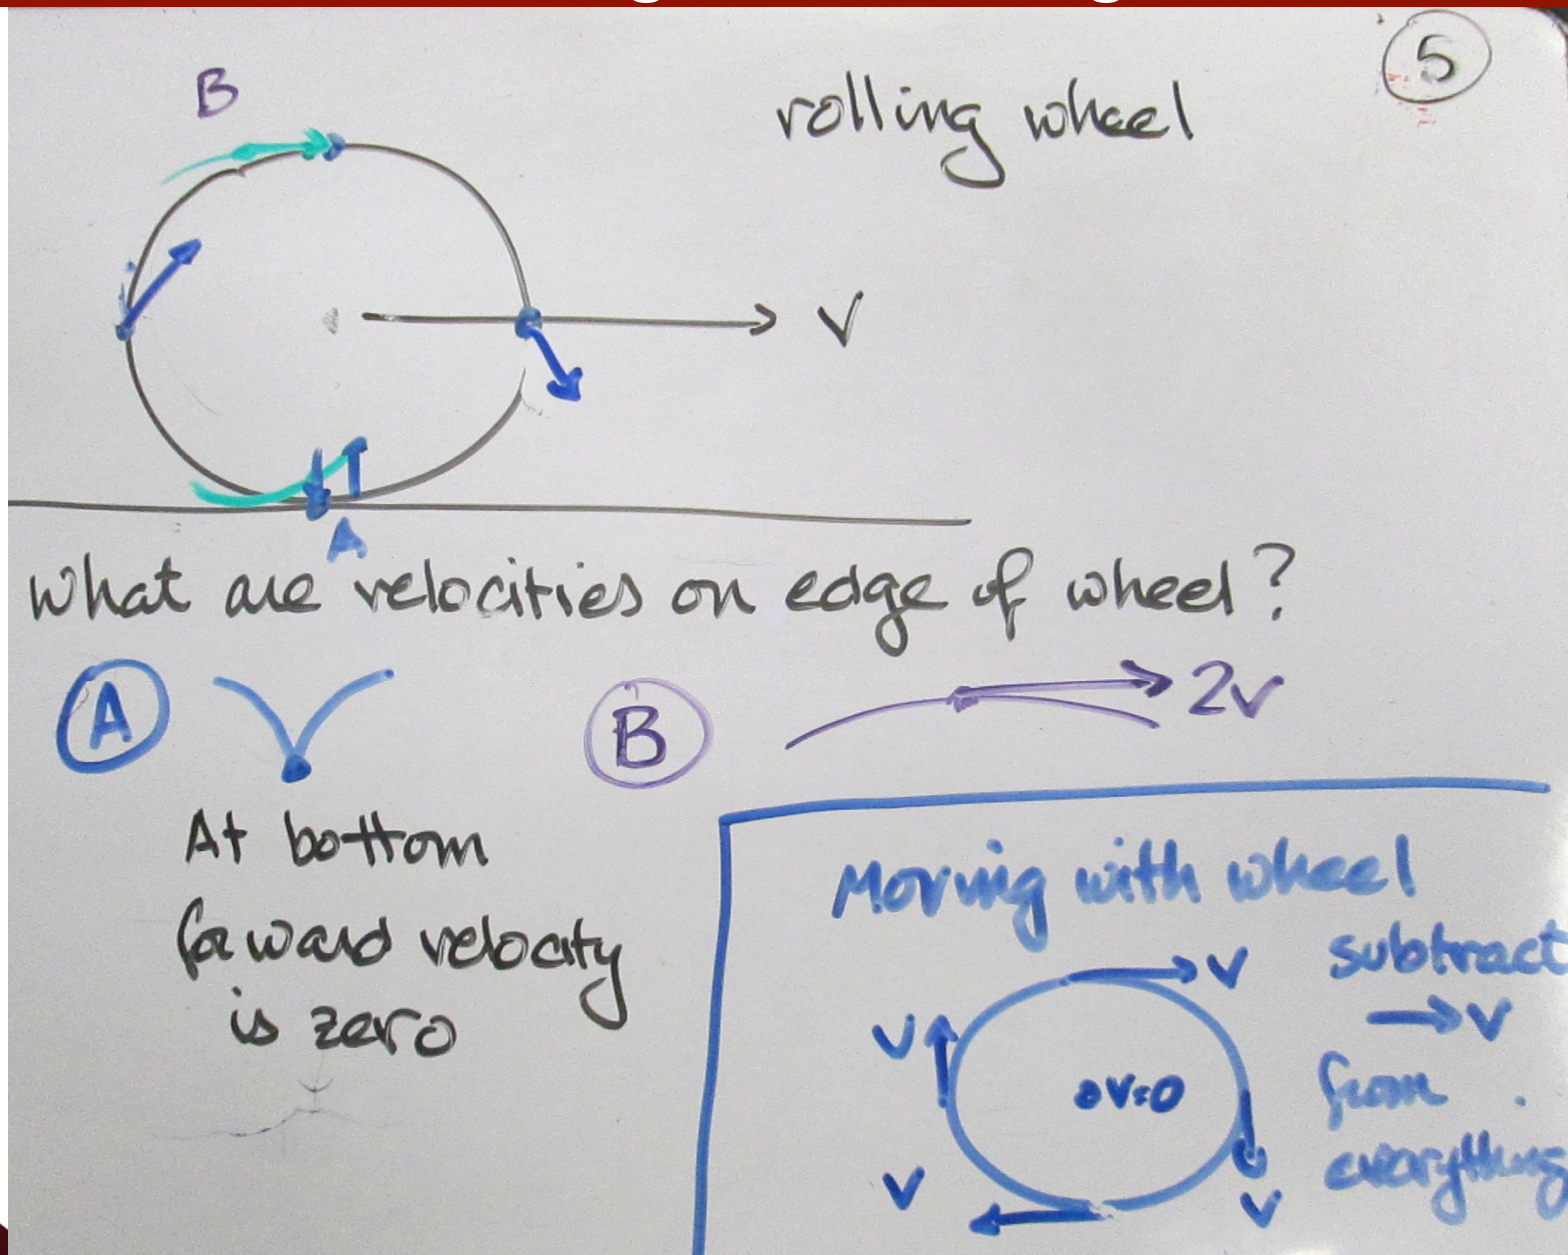 5
rolling wheel
B
V
A
What are velocities on edge of wheel?
A
B
2v
At bottom
forward velocity
is zero
Moving with wheel
V
subtract
→ V
from
everything
V
V=0
V
V